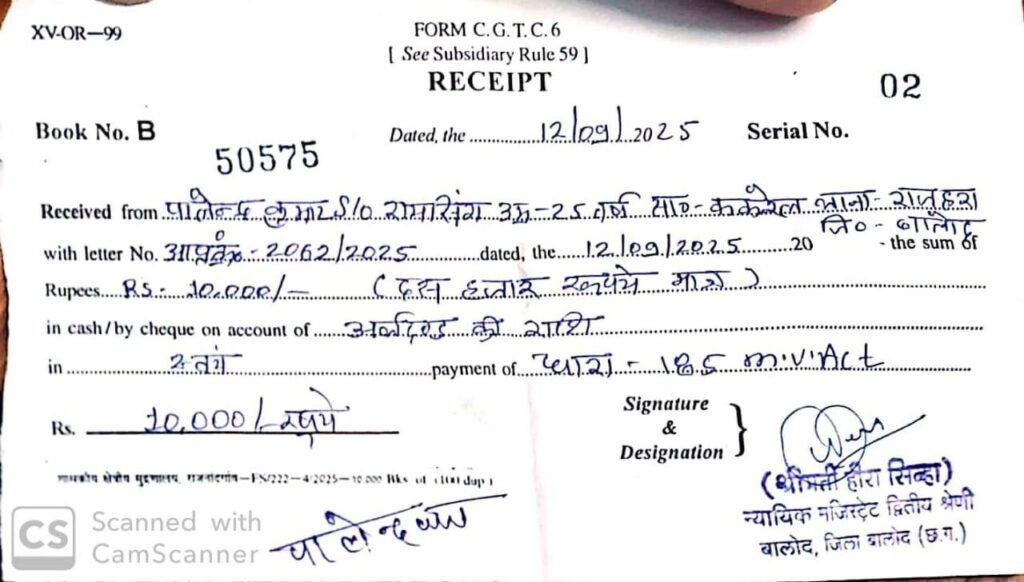 XV-OR—99
FORM C.G.T.C.6
[ See Subsidiary Rule 59 ]
RECEIPT
02
Book No. B
Dated, the 12/09/2025
Serial No.
50575
Received from पालेन्द्र कुमार S/o रामसिंग उम्र-25 वर्ष सा०- थाना- राजहरा
जि०- बालोद
with letter No. 2062/2025 dated, the 12/09/2025 20 - the sum of
Rupees RS- 10,000/- (दस हजार रूपये मात्र)
in cash/by cheque on account of अर्थदण्ड की राशि
in payment of धारा - 185 m.v. Act
Rs. 10,000/- रूपये
Signature
&
Designation
शासकीय क्षेत्रीय मुद्रणालय, राजनांदगांव—FS/222—4/2025—10,000 Bks of (100 dup)
(श्रीमती हीरा सिन्हा)
न्यायिक मजिस्ट्रेट द्वितीय श्रेणी
बालोद, जिला बालोद (छ.ग.)
CS Scanned with
CamScanner